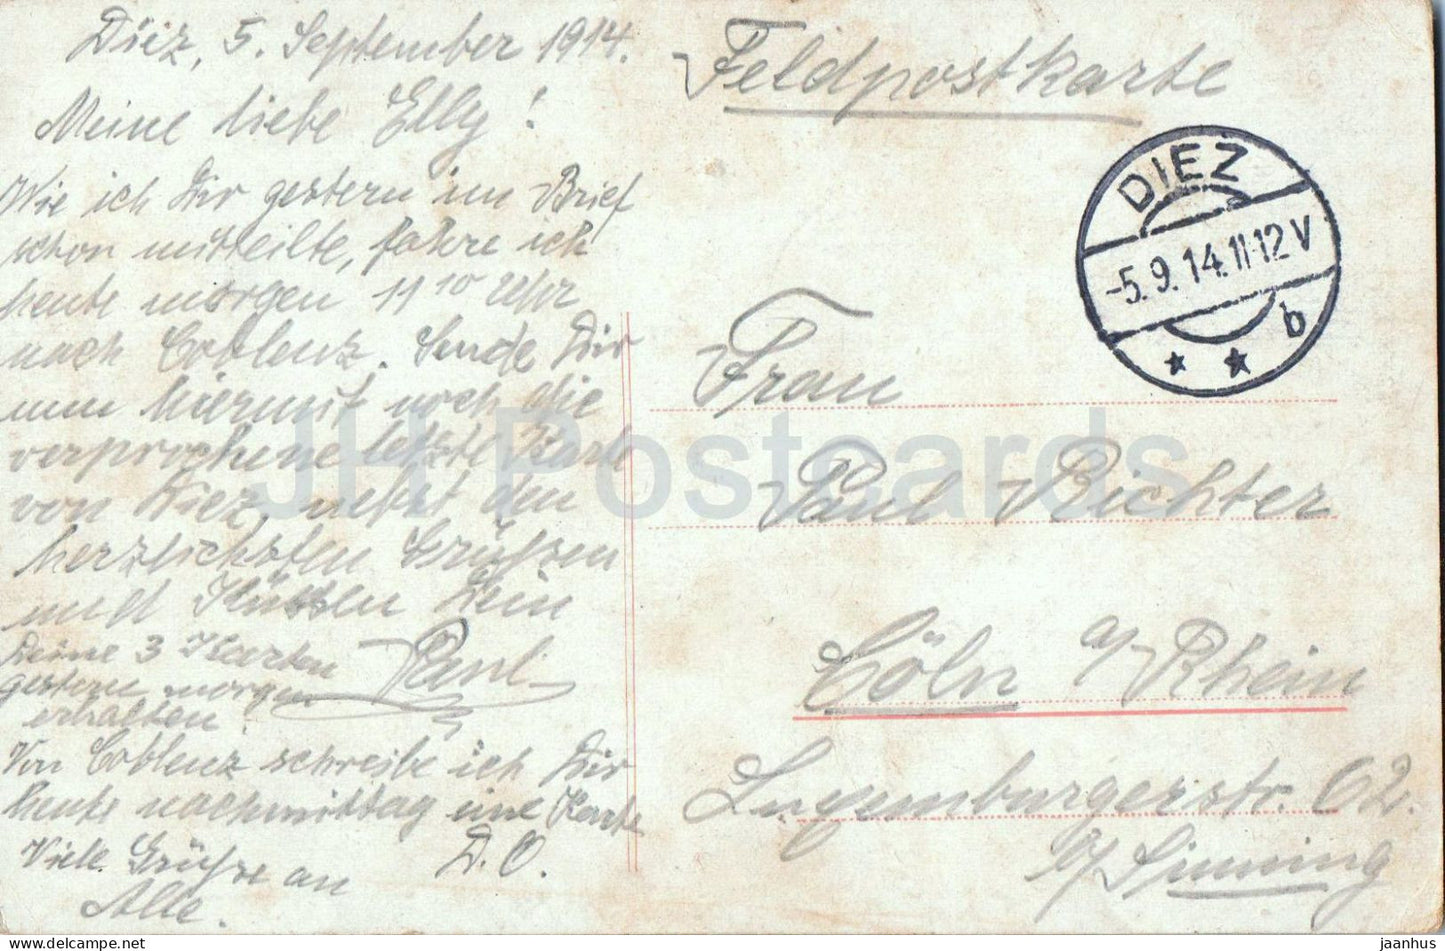 Diez, 5. September 1914.
Meine liebe Elly!
Wie ich Dir gestern im Brief
schon mitteilte, fahre ich
heute morgen 11 10 Uhr
nach Coblenz. Sende Dir
nun hiermit noch die
versprochene letzte Karte
von Diez, nebst den
herzlichsten Grüssen
und Küssen Dein
Paul
Deine 3 Karten
gestern morgen
erhalten
Von Coblenz schreibe ich Dir
heute nachmittag eine Karte
D. O.
Viele Grüsse an
Alle.
Feldpostkarte
DIEZ
-5.9.14.11-12V
b
Frau
Paul Richter
Cöln a/Rhein
Luxemburgerstr. 62.
JH Postcards
DELCAMPE.NET
jaanhus